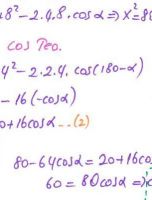 8² - 2.4.8.cosα ⇒ x² = 80
cos Peo.
4² - 2.2.4. cos(180-α)
- 16(-cosα)
0+16cosα ... (2)
80-64cosα = 20+16co
60 = 80cosα ⇒